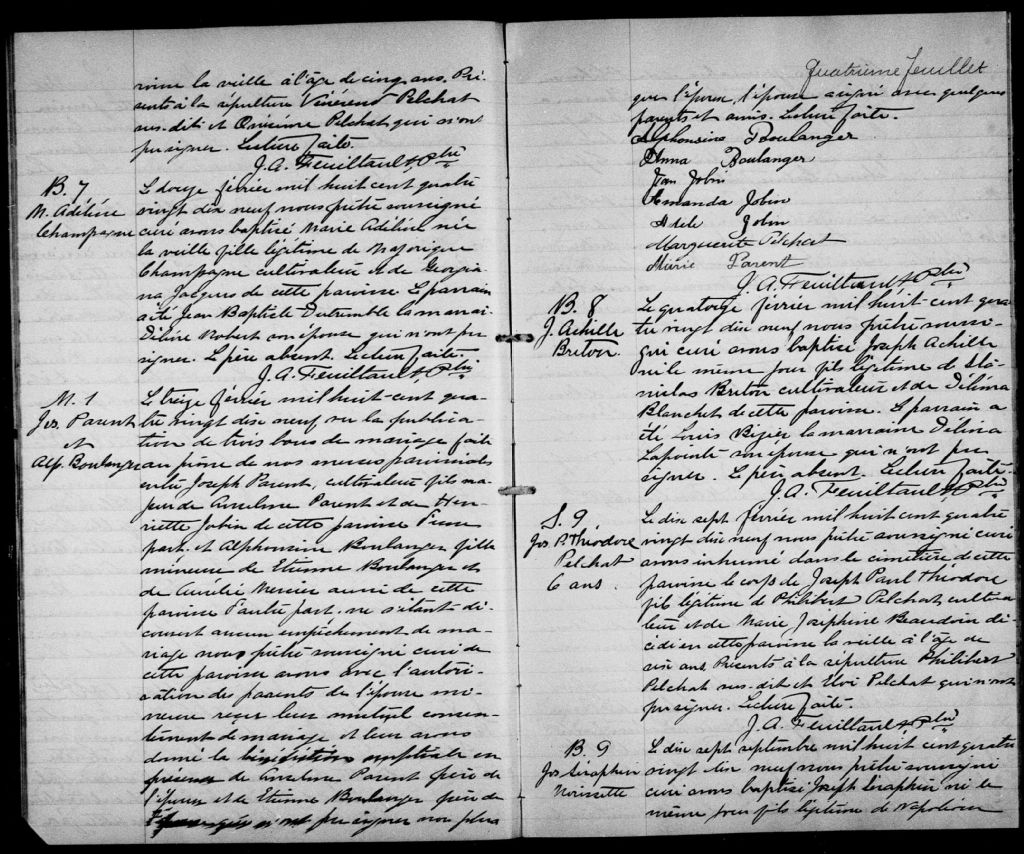 roisse la veille à l'âge de cinq ans. Pré-
sents à la sépulture Vénérend Pelchat
sus-dit et Onésime Pelchat qui n'ont
pu signer. Lecture faite.
J. A. Feuiltault, Ptre
B. 7
M. Adéline
Champagne
Le douze février mil huit cent quatre
vingt dix neuf nous prêtre soussigné
curé avons baptisé Marie Adéline née
la veille fille légitime de Majorique
Champagne cultivateur et de Georgia-
na Jacques de cette paroisse Le parrain
a été Jean Baptiste Dutremble la marrai-
Délire Robert son épouse qui n'ont pu
signer. Le père absent. Lecture faite.
J. A. Feuiltault, Ptre
M. 1
Jos. Parent
et
Alp. Boulanger
Le treize février mil huit-cent qua-
tre vingt dix neuf vu la publica-
tion de trois bans de mariage faite
au prône de nos messes paroissiales
entre Joseph Parent, cultivateur fils ma-
jeur de Anselme Parent et de Hen-
riette Jobin de cette paroisse d'une
part. et Alphonsine Boulanger fille
mineure de Etienne Boulanger et
de Aurélie Mercier aussi de cette
paroisse d'autre part. ne s'étant dé-
couvert aucun empêchement de ma-
riage nous prêtre soussigné curé de
cette paroisse avons avec l'autori-
sation des parents de l'épouse mi-
neure reçu leur mutuel consen-
tement de mariage et leur avons
donné la bénédiction nuptiale en
présence de Anselme Parent père de
l'époux et de Etienne Boulanger père de
n'ont pu signer non plus
Quatrième feuillet
que l'époux, l'épouse a signé avec quelques
parents et amis. Lecture faite.
Alphonsine Boulanger
Anna Boulanger
Jean Jobin
Amanda Jobin
Adèle Jobin
Marguerite Pelchat
Marie Parent
J. A. Feuiltault, Ptre
B. 8
J. Achille
Breton
Le quatorze février mil huit-cent qua-
tre vingt dix neuf nous prêtre soussi-
gné curé avons baptisé Joseph Achille
né le même jour fils légitime de Sta-
nislas Breton cultivateur et de Délima
Blanchet de cette paroisse. Le parrain a
été Louis Bizier la marraine Délima
Lapointe son épouse qui n'ont pu
signer. Le père absent. Lecture faite.
J. A. Feuiltault, Ptre
S. 9
Jos. P. Théodore
Pelchat
6 ans.
Le dix sept février mil huit cent quatre
vingt dix neuf nous prêtre soussigné curé
avons inhumé dans le cimetière de cette
paroisse le corps de Joseph Paul Théodore
fils légitime de Philibert Pelchat cultiva-
teur et de Marie Joséphine Beaudoin dé-
cédé en cette paroisse la veille à l'âge de
six ans. Présents à la sépulture Philibert
Pelchat sus-dit et Eloi Pelchat qui n'ont
pu signer. Lecture faite.
J. A. Feuiltault, Ptre
B. 9
Jos. Séraphin
Noissette
Le dix sept septembre mil huit cent quatre
vingt dix neuf nous prêtre soussigné
curé avons baptisé Joseph Séraphin né le
même jour fils légitime de Napoléon